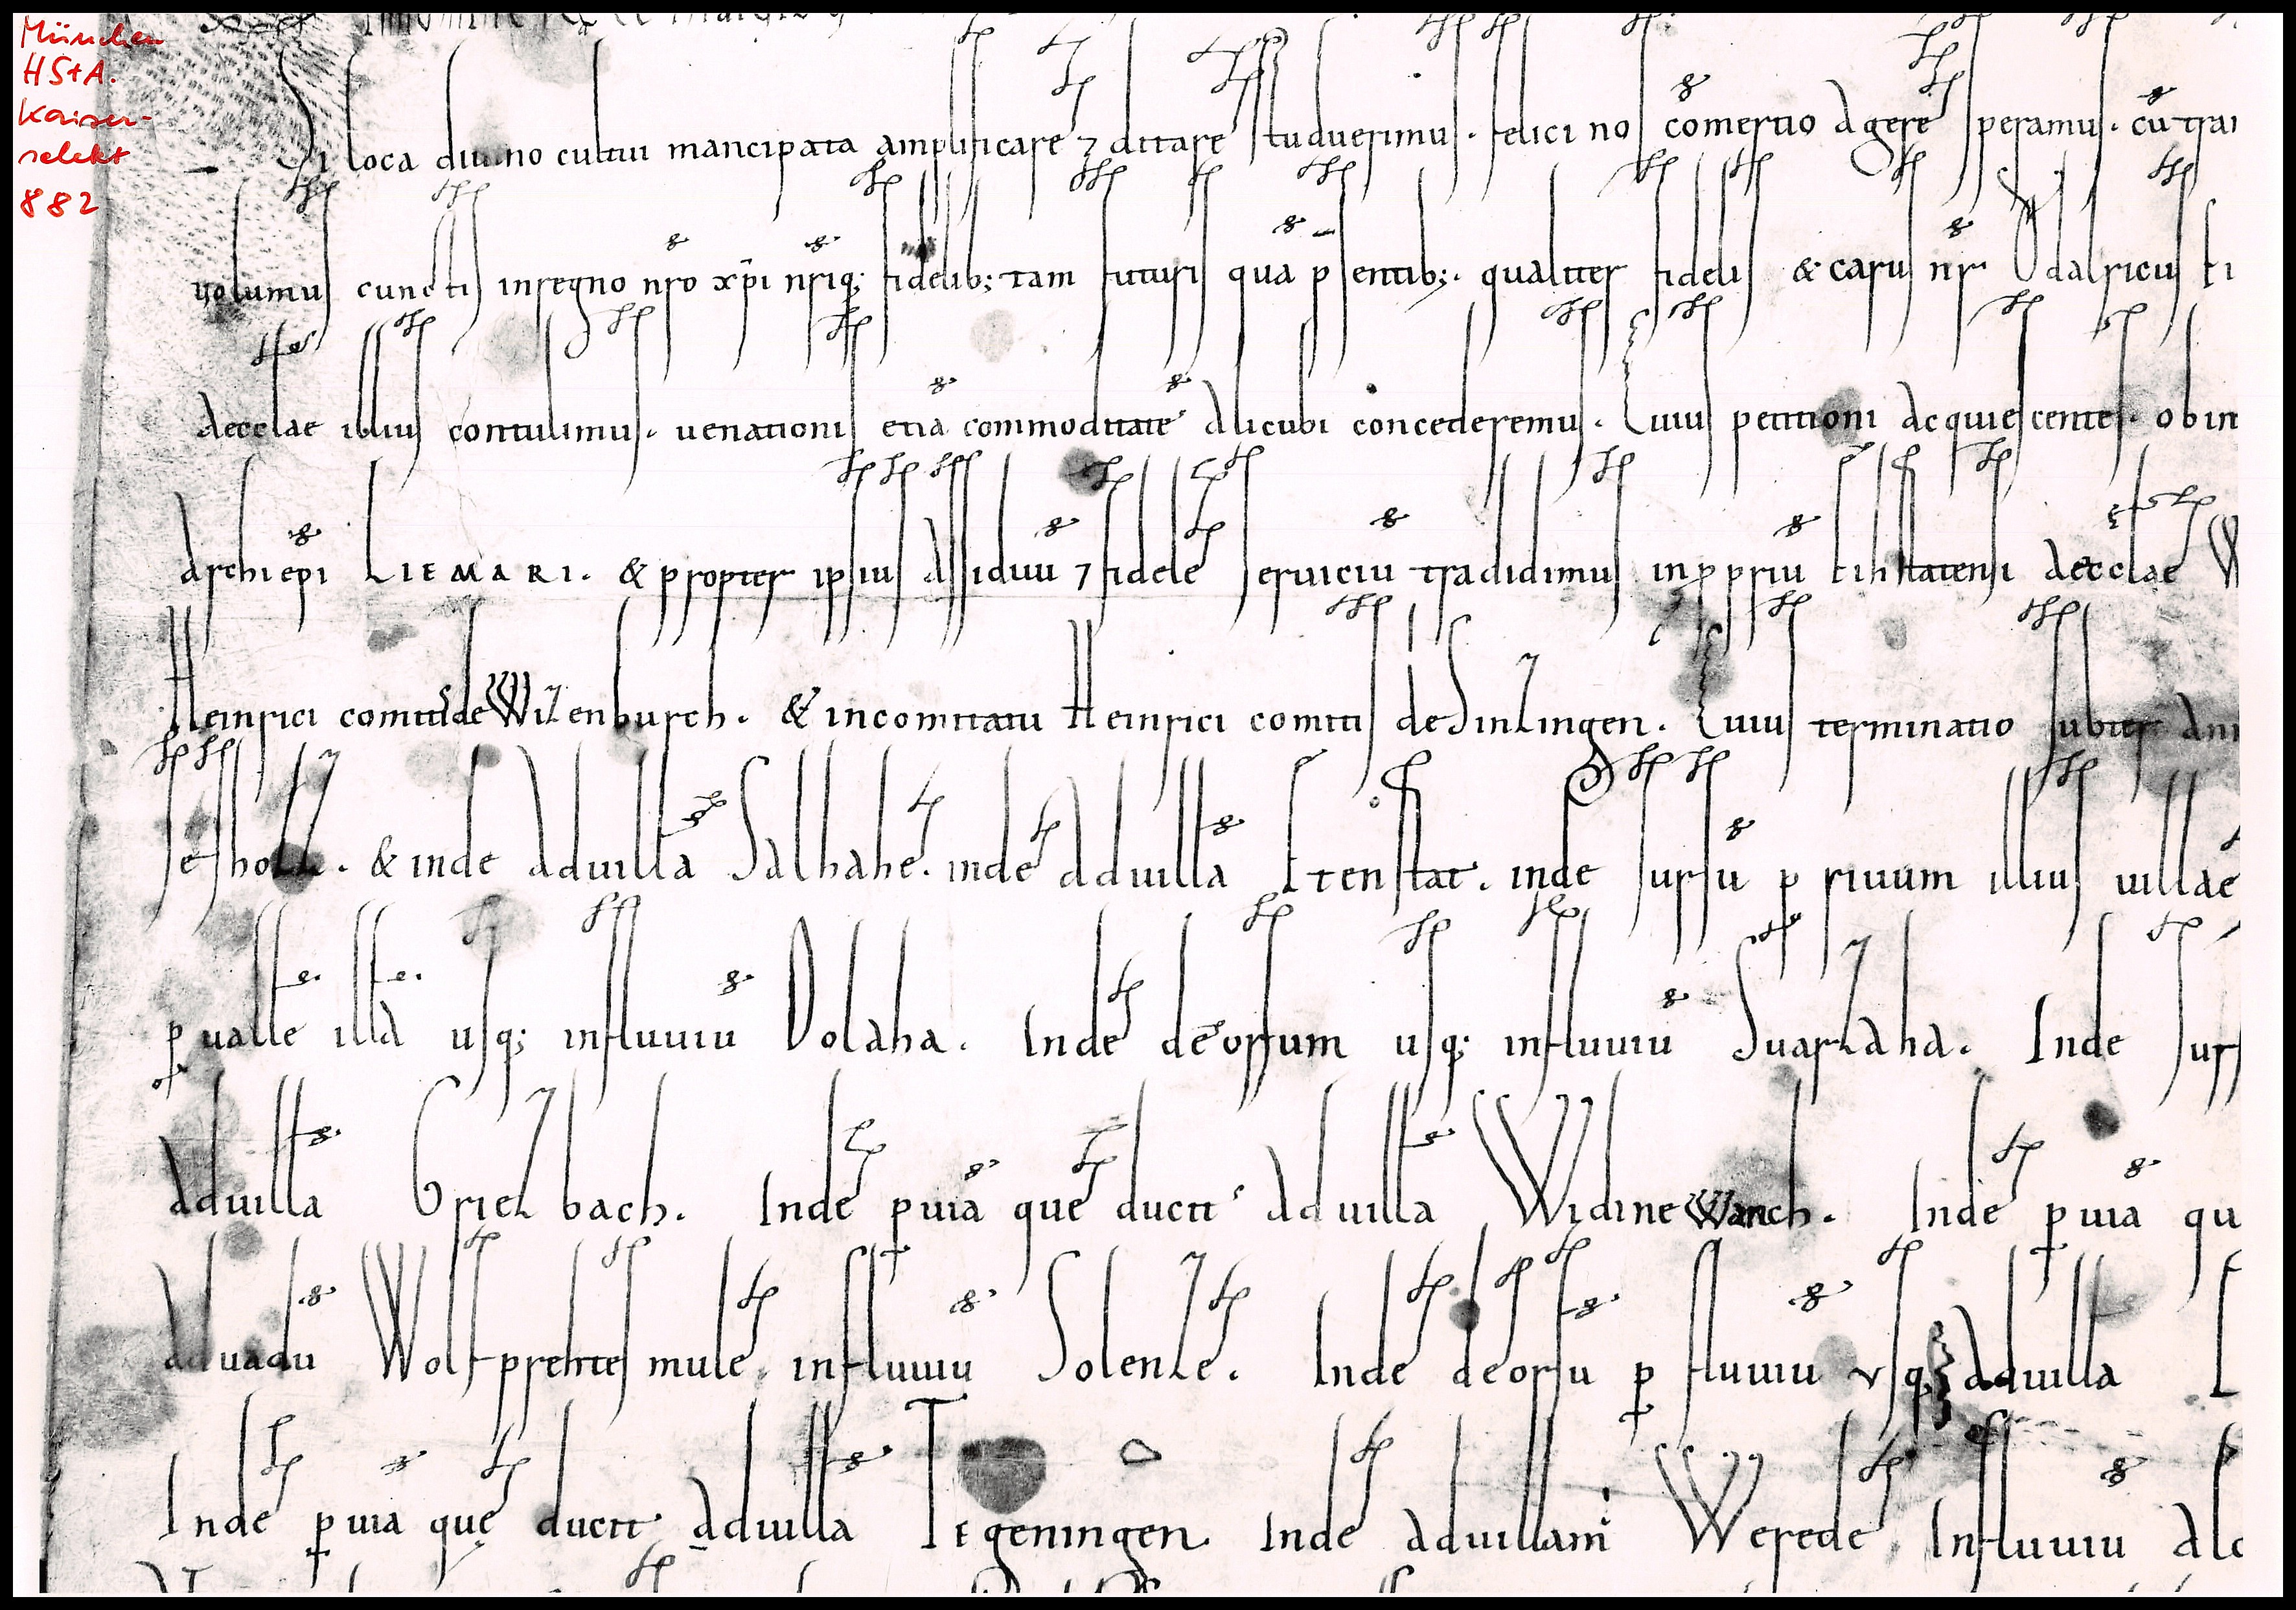 München
HStA.
Kaiser-
selekt
882
Si loca diuino cultui mancipata amplificare ⁊ ditare studuerimus. felici nos cōmertio agere speramus. cū trans
uolumus cunctis in regno nr̄o xp̄i nr̄iq; fidelib; tam futuris quā p̄sentib;. qualiter fidelis & carus nr̄ Ödalricus
aecclae illius contulimus. uenationis etiā commoditatē alicubi concederemus. Cuius petitioni acquiescentes. ob in
archiep̄i LIEMARI. & propter ipsius assiduū ⁊ fidelē seruiciū tradidimus in ꝓpriū eihstatensi aecclae W
Heinrici comitis de Wizenburch. & in comitatu Heinrici comitis de Sinzingen. Cuius terminatio subter an
sesholz. & inde ad uillā Salhahe. inde ad uillā Etenstat. inde sursū p̱ riuum illius uillae
p̱ uallē illā usq; in fluuiū Volaha. Inde deorsum usq; in fluuiū Suarzaha. Inde surs
ad uillā Griezbach. Inde p̱ uiā que ducit ad uillā Widinewanch. Inde p̱ uiā qu
ad uadū Wolfprehtes mule. in fluuiū Solenze. Inde deorsū p̱ fluuiū usq; ad uillā
Inde p̱ uiā quę ducit ad uillā Tegeningen. Inde ad uillam Werede. In fluuiū Alc